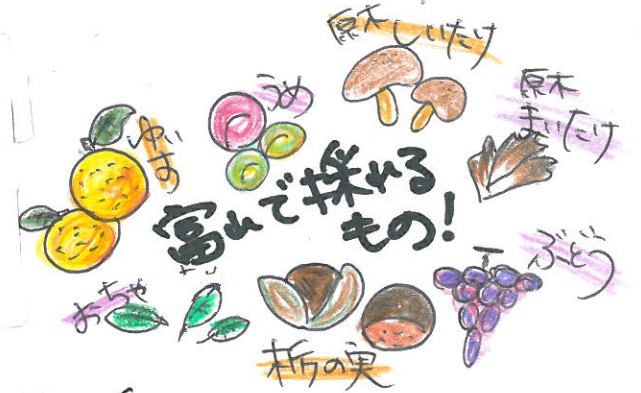 原木しいたけ
うめ
原木
まいたけ
ゆず
富山で採れる
もの!
ぶどう
おちゃ
栃の実